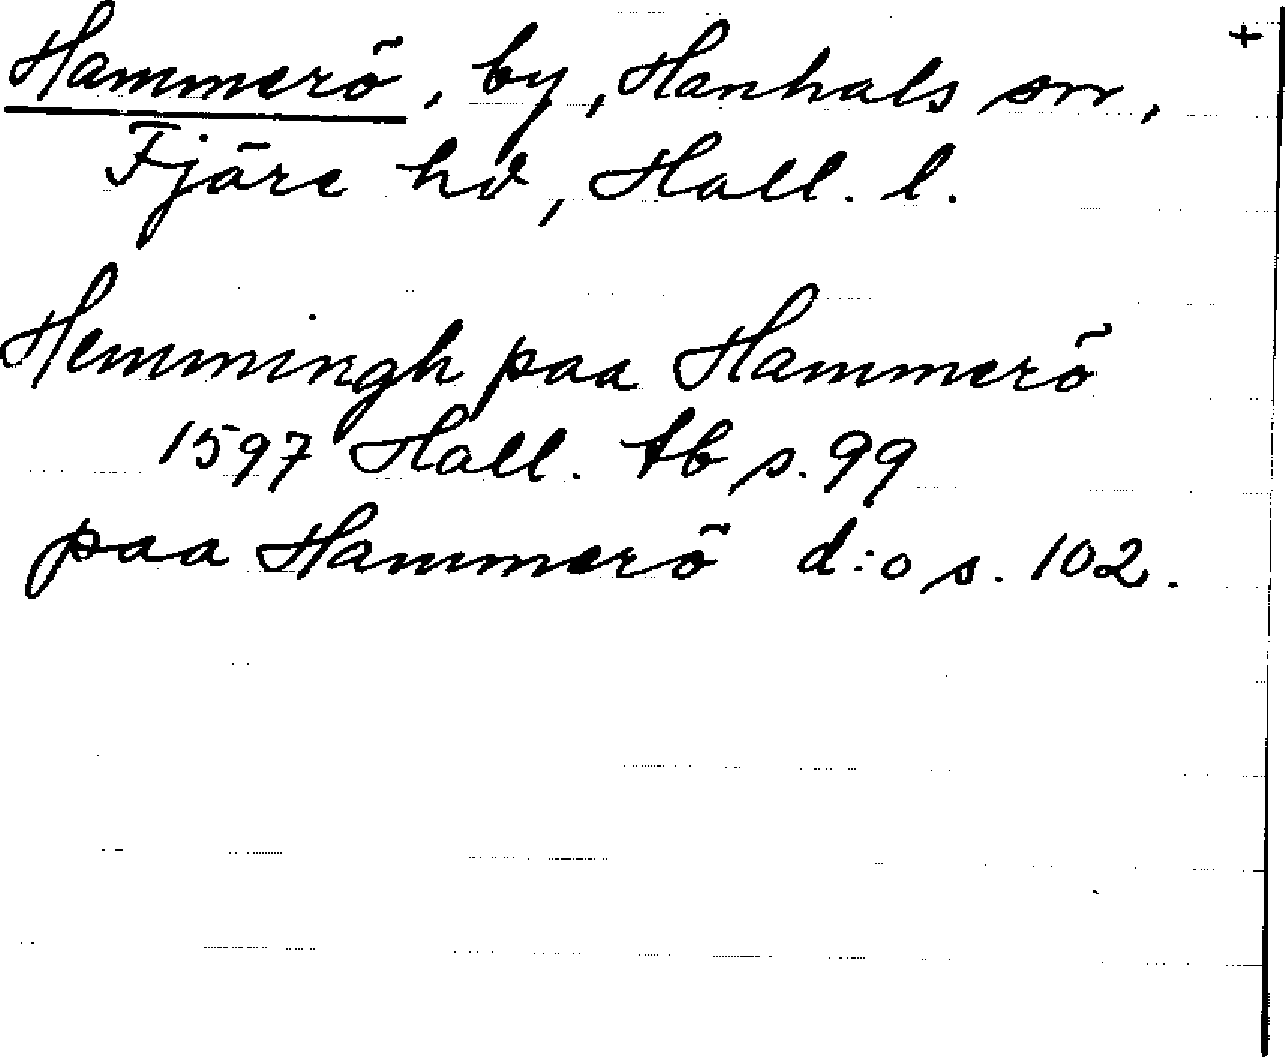 Hammerö, by, Hanhals sn, +
Fjäre hd, Hall. l.
Hemmingh paa Hammerö
1597 Hall. tb s. 99
paa Hammerö d:o s. 102.